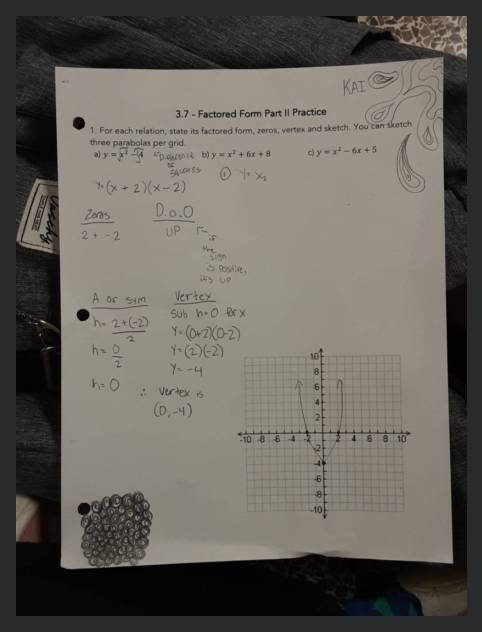 KAI
3.7 - Factored Form Part II Practice
1. For each relation, state its factored form, zeros, vertex and sketch. You can sketch
three parabolas per grid.
a) y = x² - 4 Difference of Squares b) y = x² + 6x + 8 c) y = x² − 6x + 5
① y= x₂
y=(x+2)(x-2)
Zeros D.o.O
2 + -2 UP if
the
sign
is positive,
it's UP
A of sym Vertex
h= 2+(-2)/2 sub h=0 for x
y=(0+2)(0-2)
h= 0/2 y=(2)(-2)
y= -4
h= 0 ∴ Vertex is
(0,-4)
10
8
6
4
2
-10 -8 -6 -4 -2 2 4 6 8 10
-2
-4
-6
-8
-10